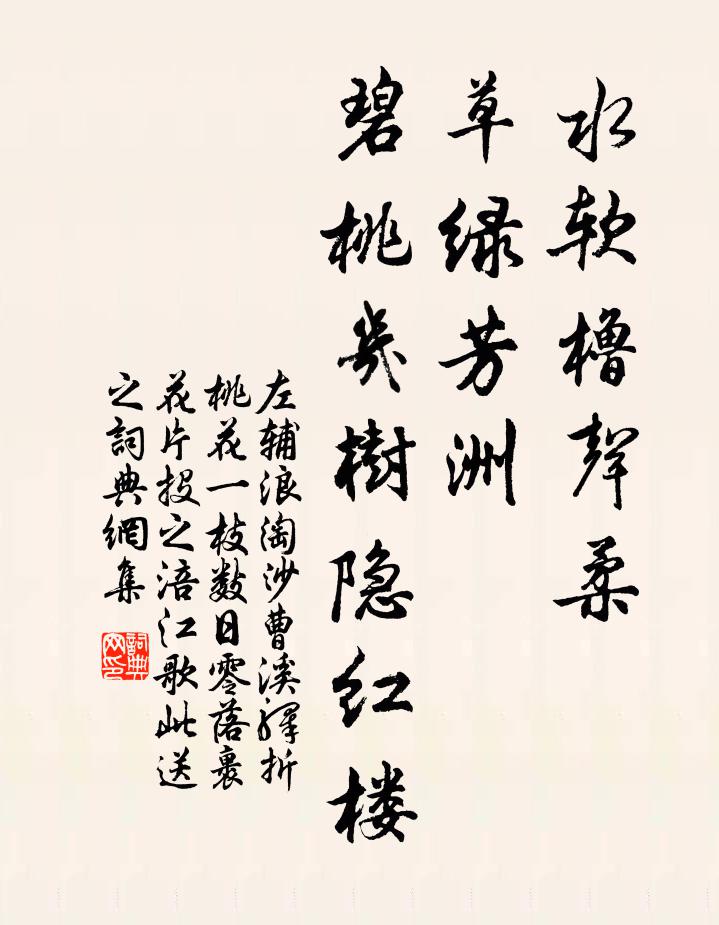 水软橹聲柔
草绿芳洲
碧桃幾樹隐红楼
左辅浪淘沙曹溪驛折
桃花一枝数日零落裹
花片投之涪江歌此送
之詞典網集
詞典
网印